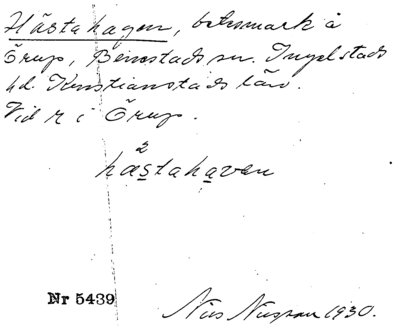 Hästahagen, betesmark å
Örup, Benestads sn. Ingelstads
hd. Kristianstads län.
Vid r i Örup.
2
hästahaven
Nr 5439
Nils Nilsson 1930.